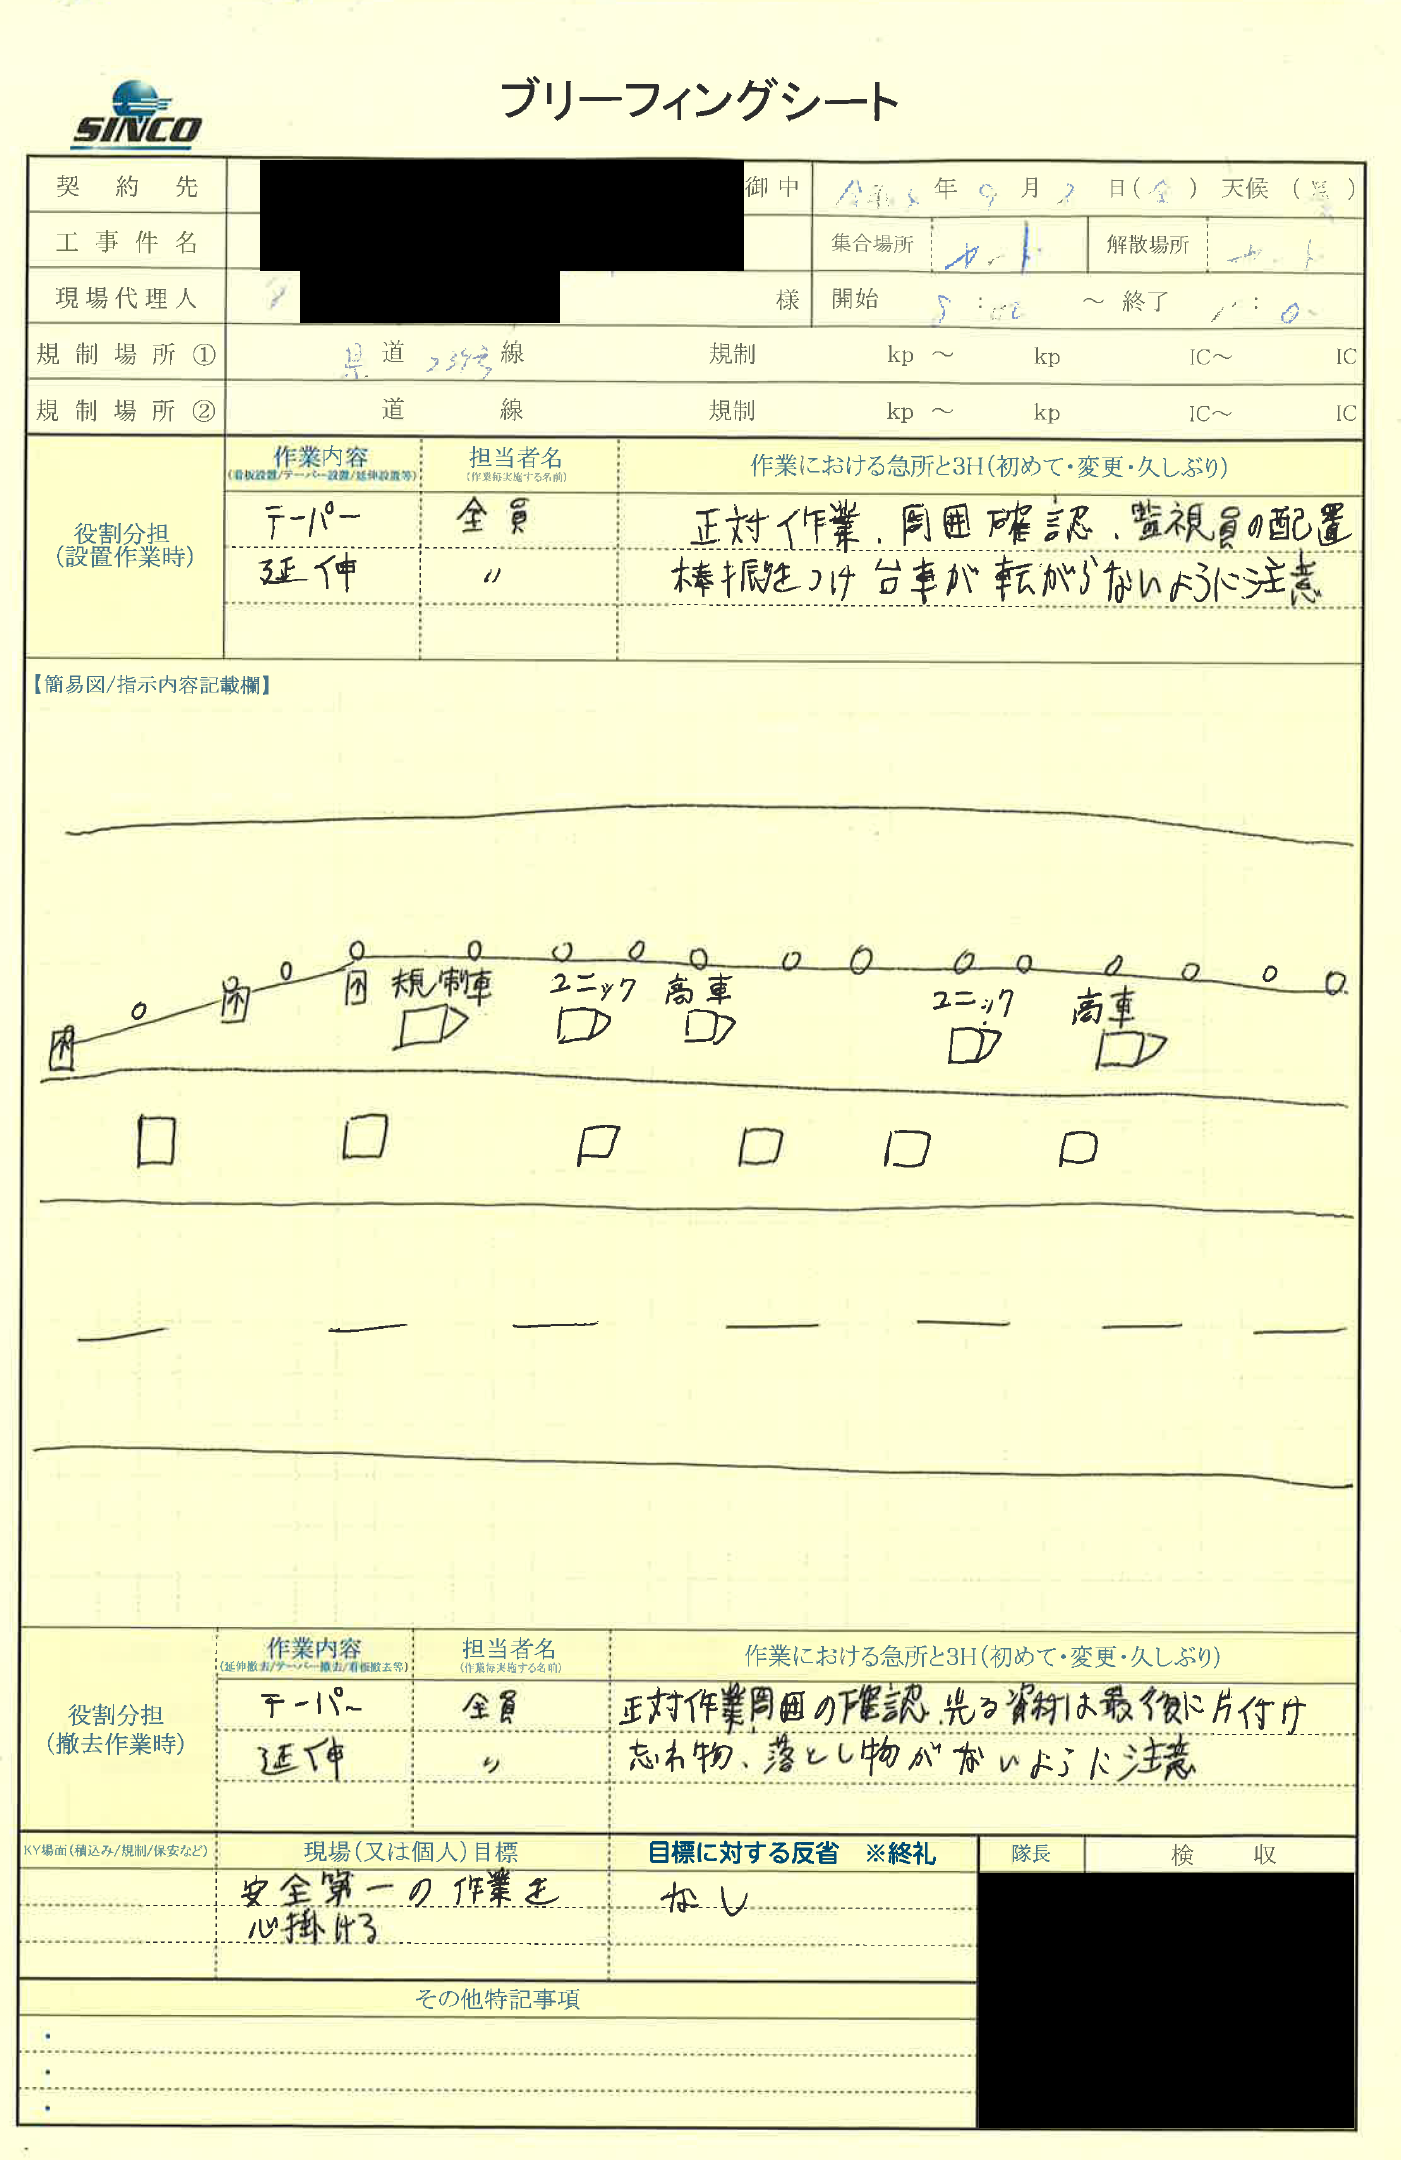 SINCO
ブリーフィングシート
契約先 御中 年 9 月 日(金) 天候( )
工事件名 集合場所 解散場所
現場代理人 様 開始 8: ～ 終了 :
規制場所① 県道 線 規制 kp ～ kp IC～ IC
規制場所② 道 線 規制 kp ～ kp IC～ IC
役割分担
(設置作業時)
作業内容 担当者名 作業における急所と3H(初めて・変更・久しぶり)
(看板設置/テーパー設置/延伸設置等) (作業毎実施する名前)
テーパー 全員 正対作業、周囲確認、監視員の配置
延伸 〃 棒振をつけ台車が転がらないように注意
【簡易図/指示内容記載欄】
規制車 ユニック 高車 ユニック 高車
役割分担
(撤去作業時)
作業内容 担当者名 作業における急所と3H(初めて・変更・久しぶり)
(延伸撤去/テーパー撤去/看板撤去等) (作業毎実施する名前)
テーパー 全員 正対作業周囲の確認、光る資材は最後に片付け
延伸 〃 忘れ物、落とし物がないように注意
KY場面(積込み/規制/保安など) 現場(又は個人)目標 目標に対する反省 ※終礼 隊長 検収
安全第一の作業を なし
心掛ける
その他特記事項
・
・
・